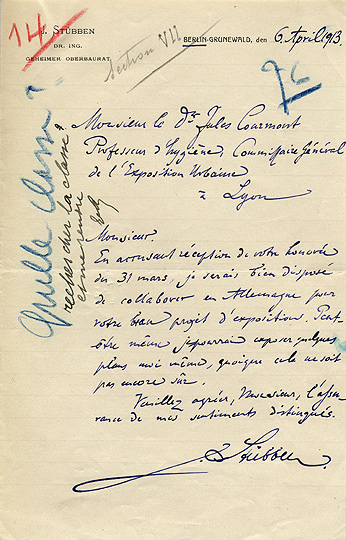 14
J. STÜBBEN
DR. ING.
GEHEIMER OBERBAURAT.
Section VII
BERLIN-GRUNEWALD, den 6 April 1913
76
Monsieur le Dr. Jules Courmont
Professeur d'hygiène, Commissaire Général
de l'Exposition Urbaine
à Lyon
Quelle classe?
rechercher la classe?
et me rendre
Monsieur.
En accusant réception de votre honorée
du 31 mars, je serais bien disposé
de collaborer en Allemagne pour
votre beau projet d'exposition. Peut-
être même je pourrai exposer quelques
plans moi même, quoique cela ne soit
pas encore sûr.
Veuillez agréer, Monsieur, l'assu-
rance de mes sentiments distingués.
J. Stübben.